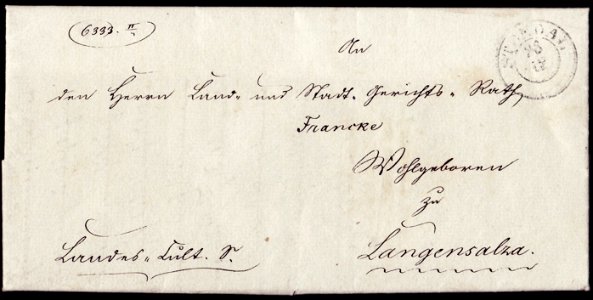 6333. II
An
STENDAL
26
12
den Herrn Land- und Stadt-Gerichts-Rath
Francke
Wohlgeboren
zu
Langensalza.
Landes-Cult. S.